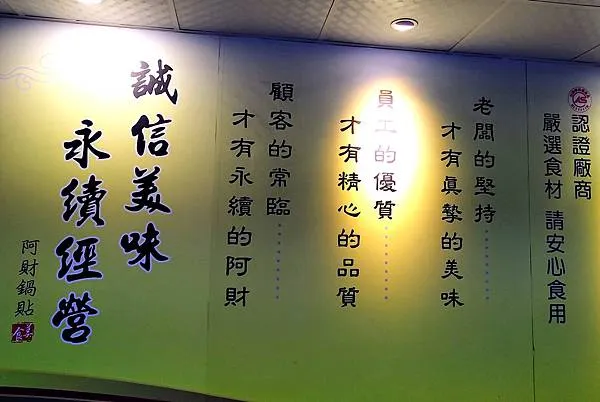 認證廠商
嚴選食材 請安心食用
老闆的堅持……
才有真摯的美味
員工的優質……
才有精心的品質
顧客的常臨……
才有永續的阿財
誠信美味
永續經營
阿財鍋貼
美食